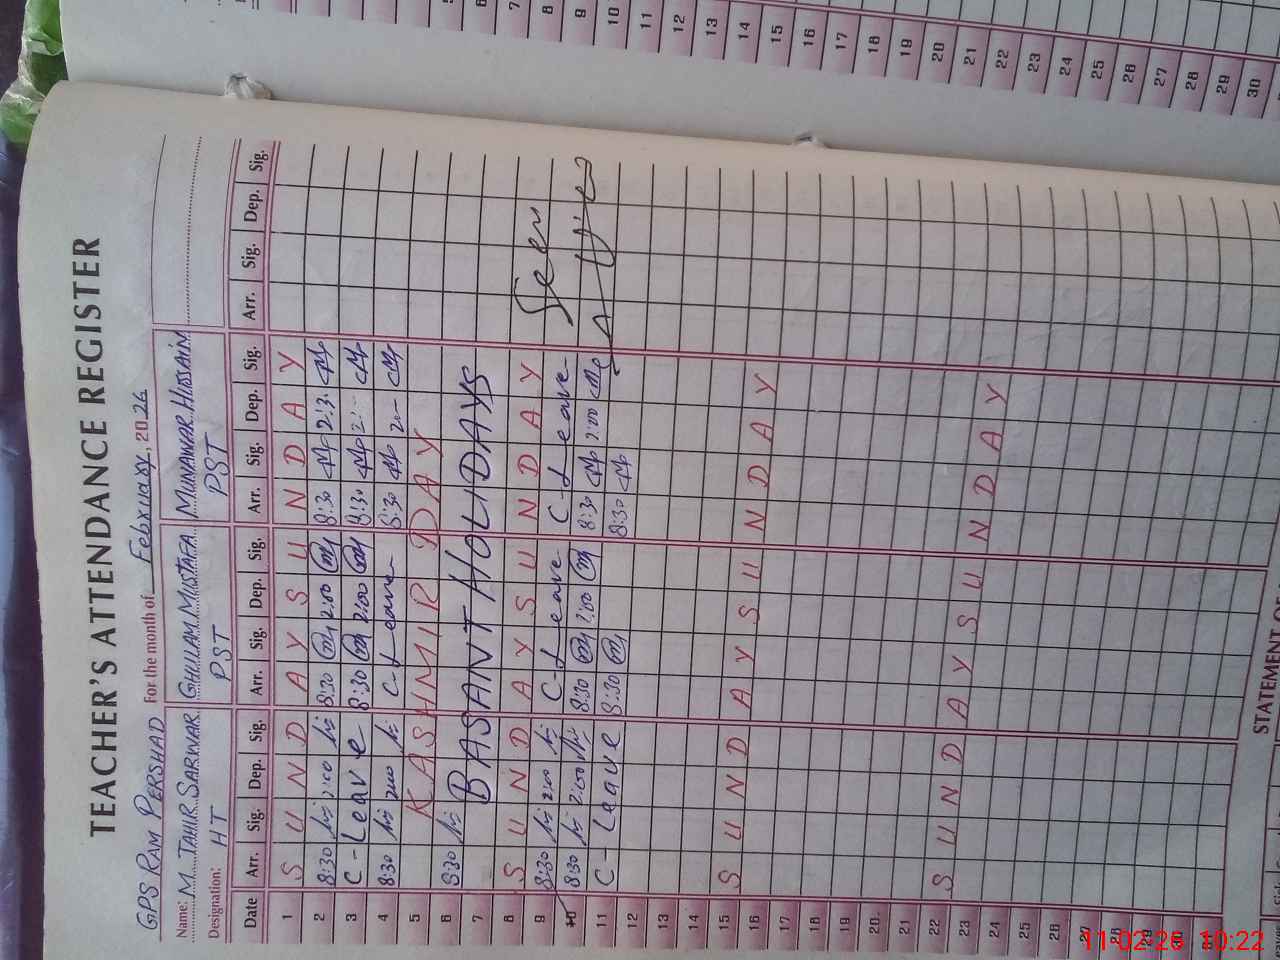 TEACHER'S ATTENDANCE REGISTER
GPS RAM PERSHAD For the month of February, 2026
Name: M. TAHIR SARWAR GHULAM MUSTAFA MUNAWAR HUSSAIN
Designation: HT PST PST
Date Arr. Sig. Dep. Sig. Arr. Sig. Dep. Sig. Arr. Sig. Dep. Sig. Arr. Sig. Dep. Sig.
1 S U N D A Y S U N D A Y
2 8:30 2:00 8:30 2:00 8:30
3 C-Leave 8:30 2:00 8:30
4 8:30 2:00 C-Leave 8:30
5 KASHMIR DAY
6 8:30
7 BASANT HOLIDAYS
8 S U N D A Y S U N D A Y
9 8:30 2:00 C-Leave C-Leave
10 8:30 2:00 8:30 2:00 8:30 2:00
11 C-Leave 8:30 8:30
Seen
12
13
14
15 S U N D A Y S U N D A Y
16
17
18
19
20
21
22 S U N D A Y S U N D A Y
23
24
25
26
27
28
29
30
STATEMENT OF
6
7
8
9
10
11
12
13
14
15
16
17
18
19
20
21
22
23
24
25
26
27
28
29
30
11-02-26 10:22